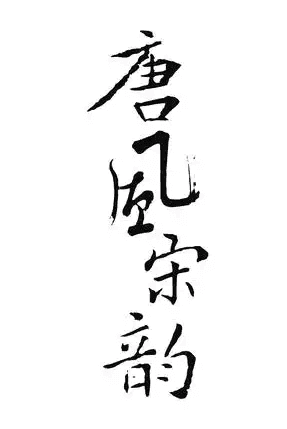 唐风宋韵